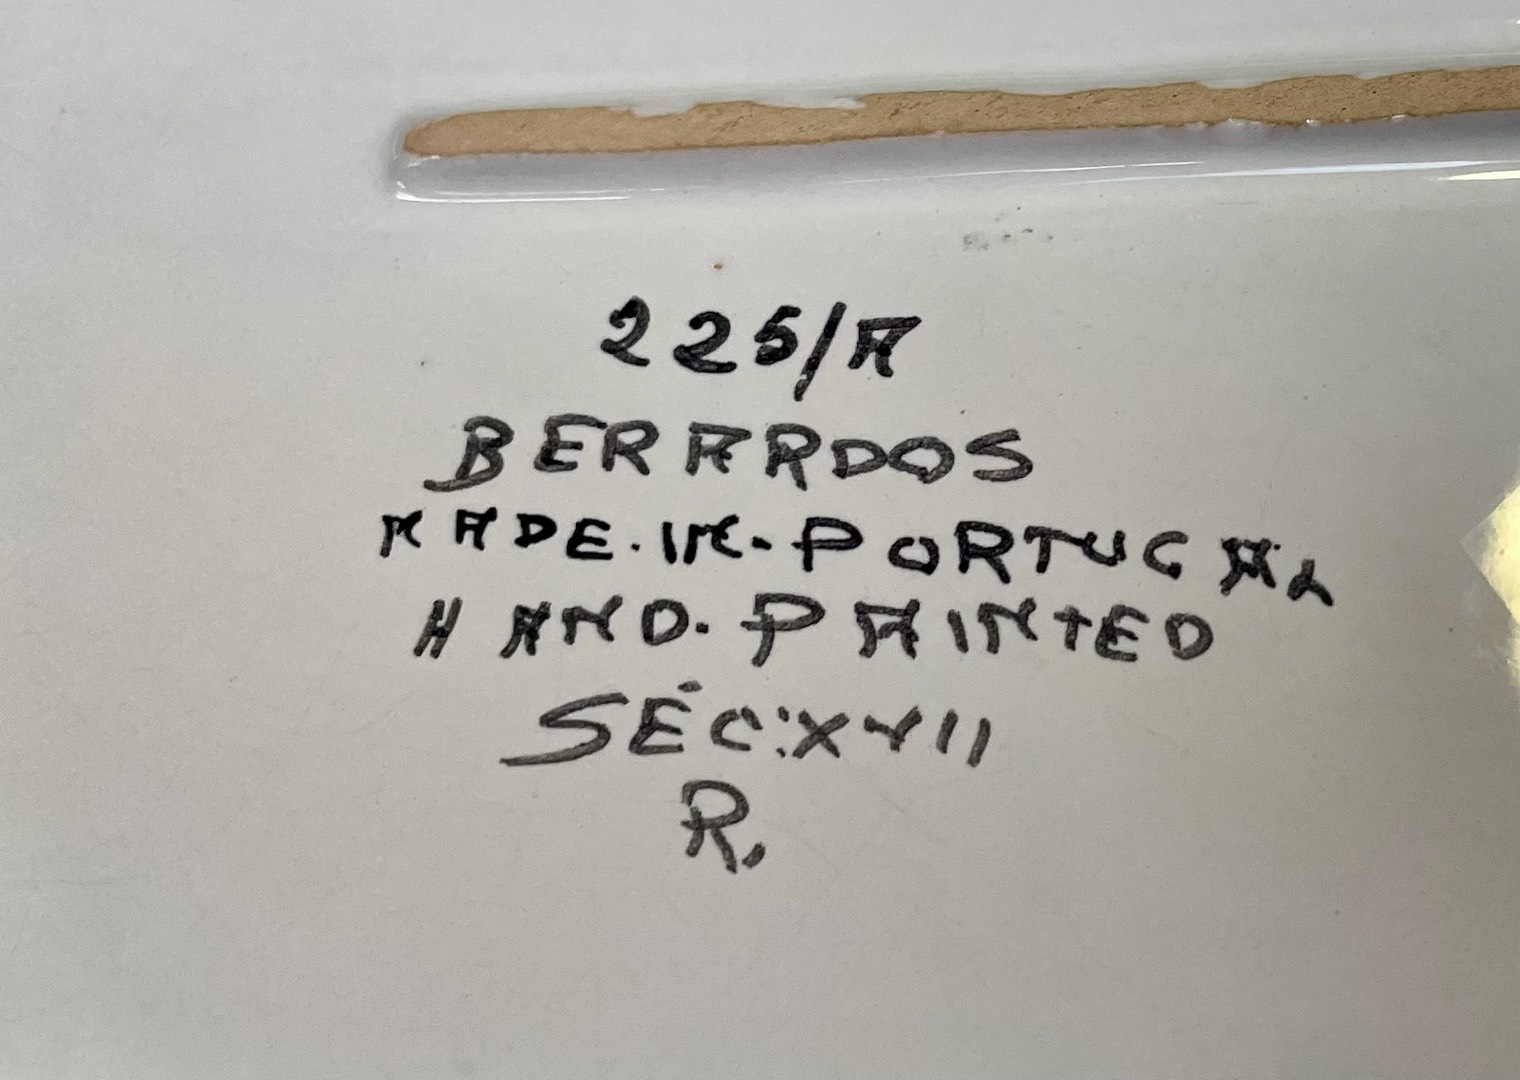 225/A
BERARDOS
MADE.IN.PORTUGAL
HAND.PAINTED
SÉC:XVII
R.